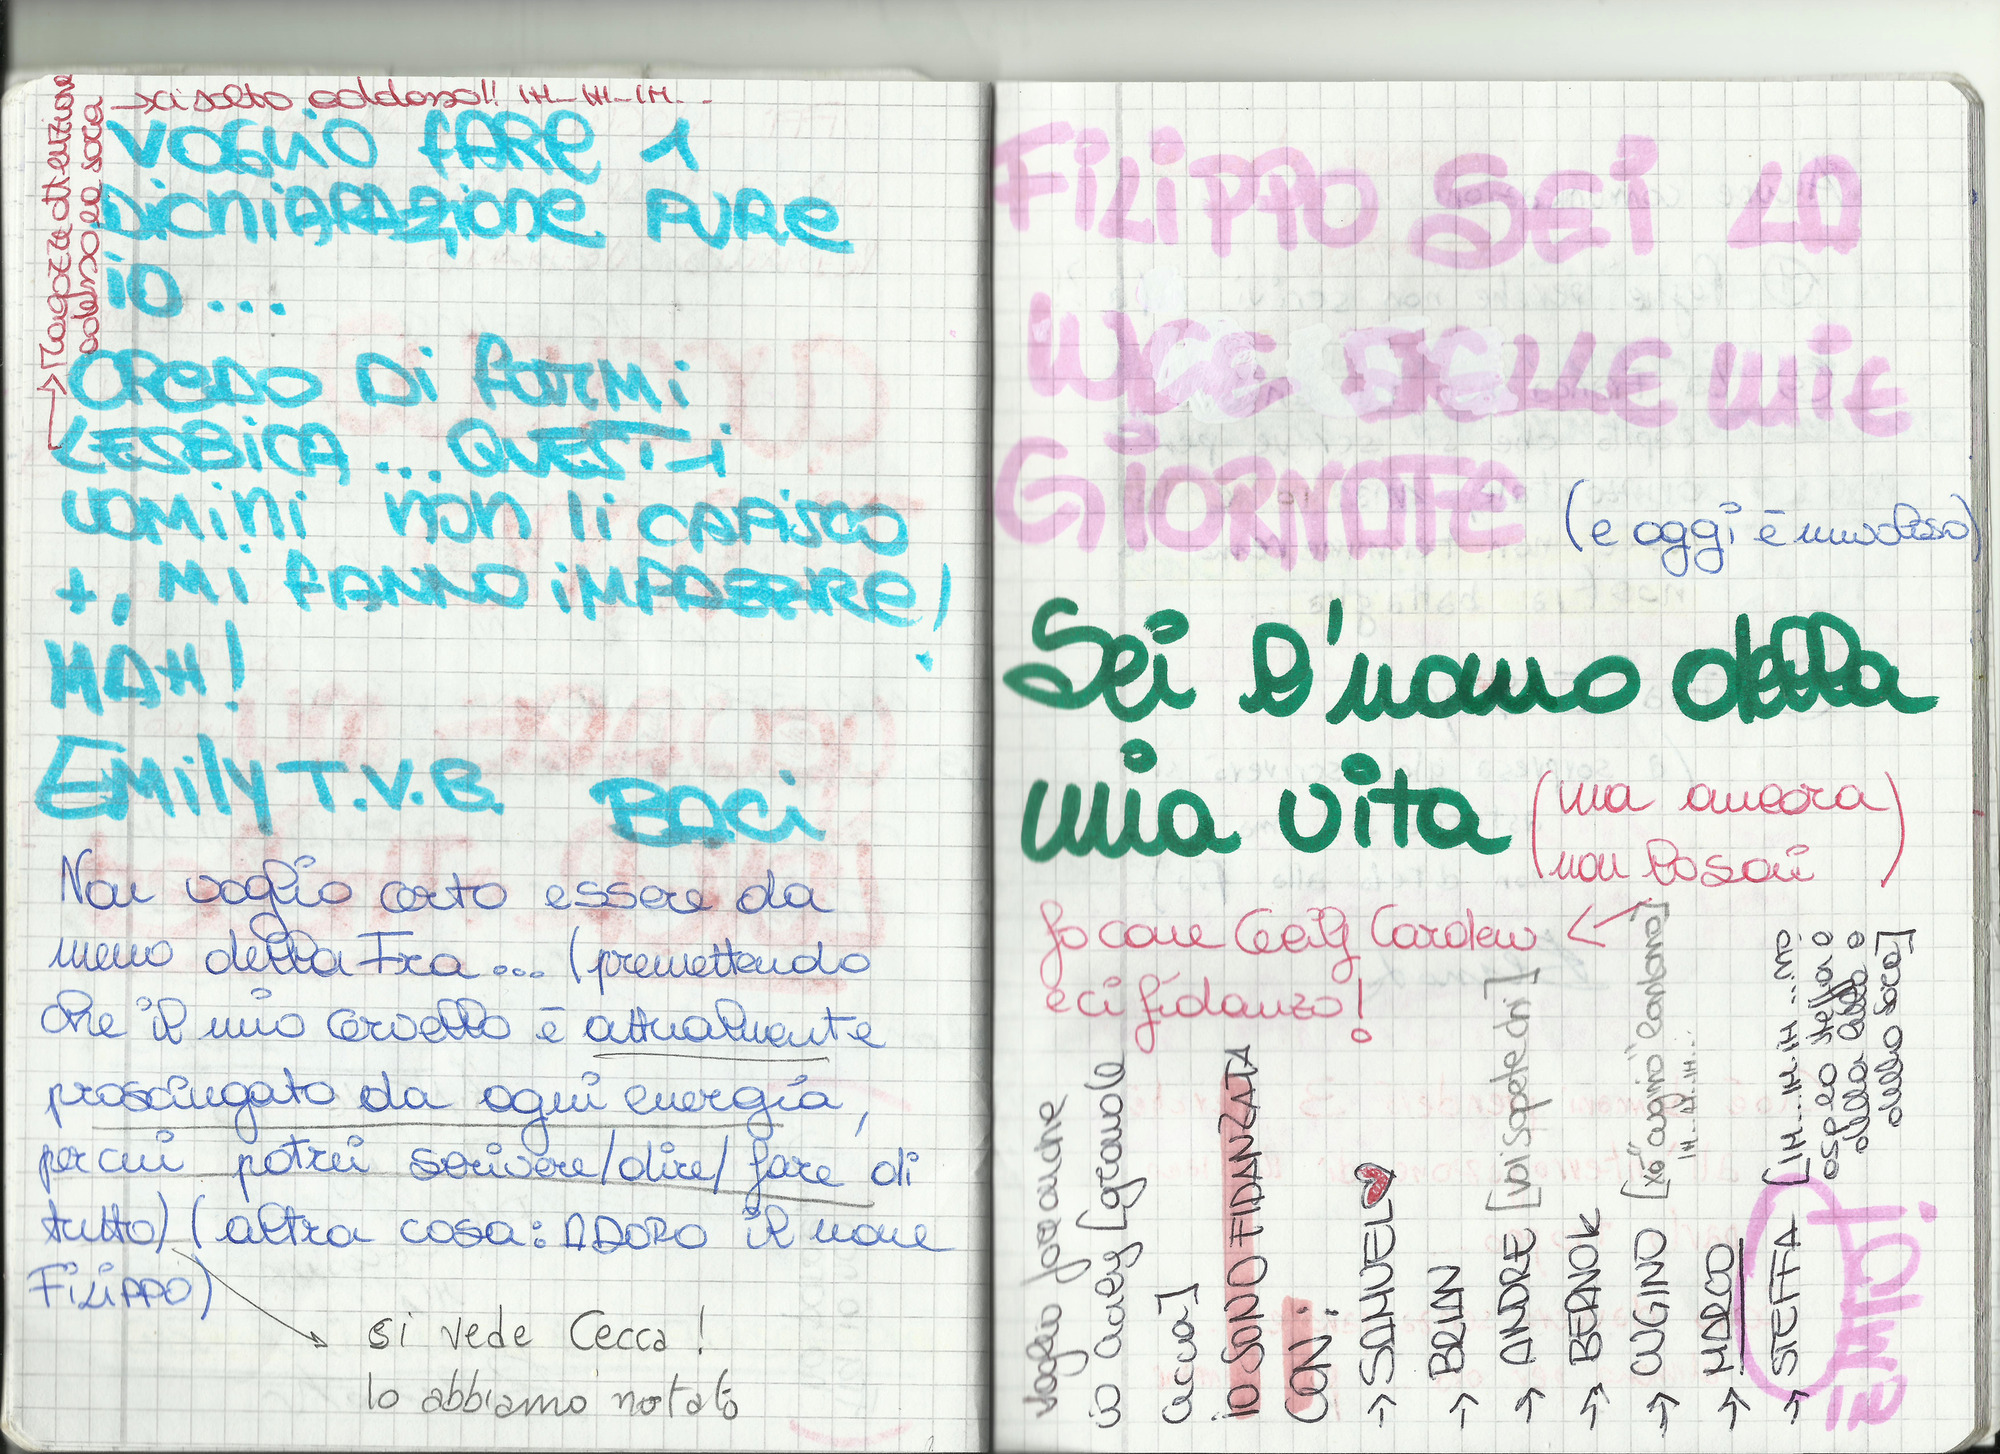 → ci salto addosso!! IH_ IH_ IH_..
→ Ragazze attenzione
addosso la soca
VOGLIO FARE 1
DICHIARAZIONE PURE
IO...
CREDO DI FARMI
LESBICA... QUESTI
UOMINI NON LI CAPISCO
+, MI FANNO IMPAZZIRE,
MAH!
EMILY T.V.B. BACI
Non voglio certo essere da
meno della Fra... (premettendo
che il mio cervello è attualmente
prosciugato da ogni energia,
per cui potrei scrivere/dire/fare di
tutto) (altra cosa: ADORO il nome
FILIPPO)
si vede Cecca!
lo abbiamo notato
FILIPPO SEI LA
LUCE DELLE MIE
GIORNATE (e oggi è nuvoloso)
Sei l'uomo della
mia vita (ma ancora
non lo sai)
fo come Cecily Cardew
e ci fidanzo!
voglio fare anche
io Acley [grande
acua]
IO SONO FIDANZATA
CON:
→ SAMUEL
→ BRIAN
→ ANDRE [voi sapete chi]
→ BERNOK
→ CUGINO [xò "cugino" lontano]
IH..IH..IH...
→ MARCO
→ STEFFA [IH...IH.IH...NO